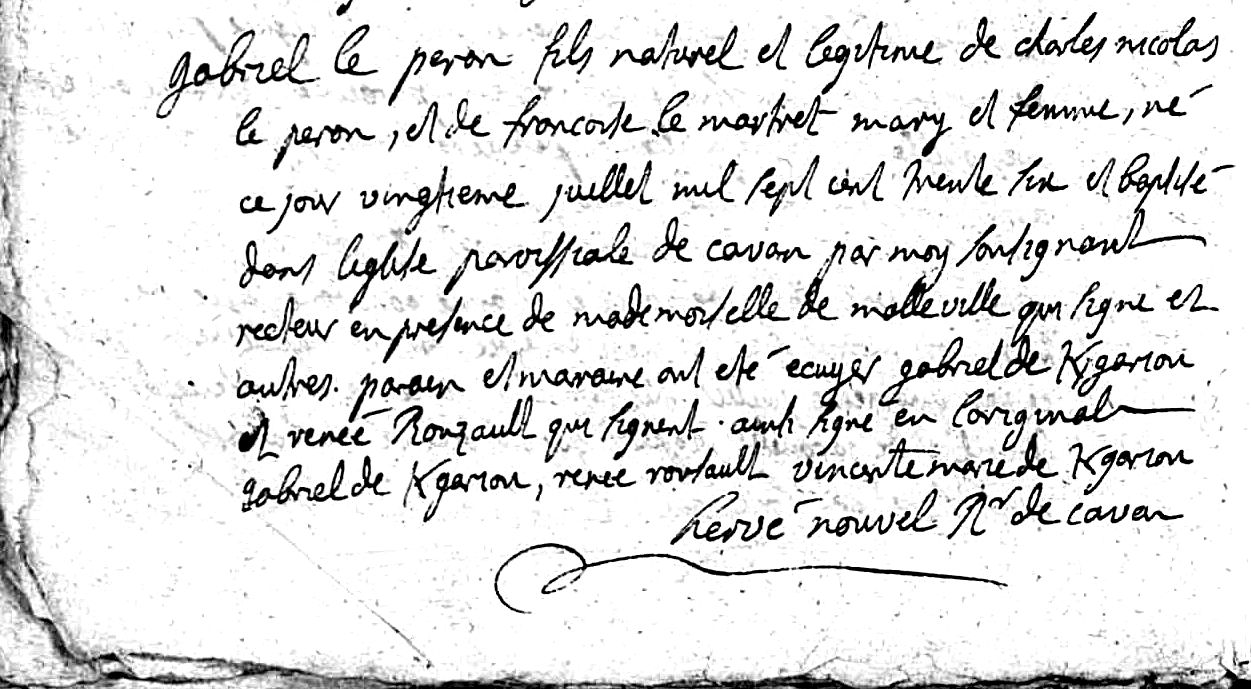 gabriel le peron fils naturel et legitime de charles nicolas
le peron, et de francoise le martret mary et femme, né
ce jour vingtieme juillet mil sept cent trente six et baptisé
dans l'eglise paroissiale de cavan par moy soussignant
recteur en presence de mademoiselle de malleville qui signe et
autres. parain et maraine ont eté écuyer gabriel de Kgariou
et reneé Rouzault qui signent. ainsi signé en l'original
gabriel de Kgariou, renee rousault vincente marie de Kgariou
hervé nouvel Rr de cavan